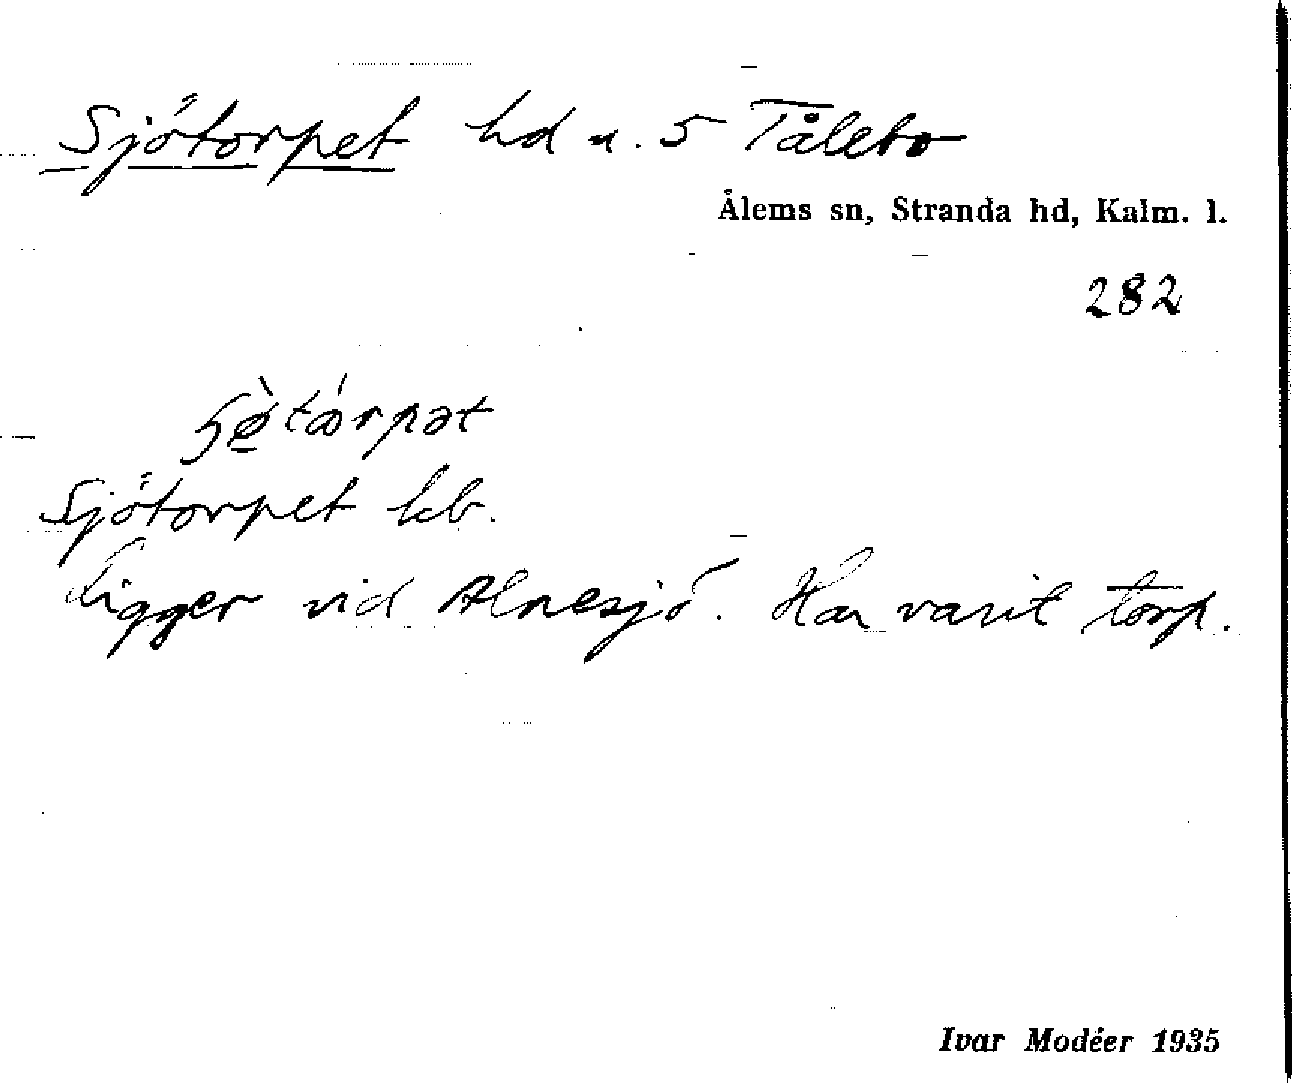 Sjötorpet hd u. 5 Tålebo
Ålems sn, Stranda hd, Kalm. l.
282
Sjötorpet kb.
Ligger vid Alnesjö. Har varit torp.
Ivar Modéer 1935